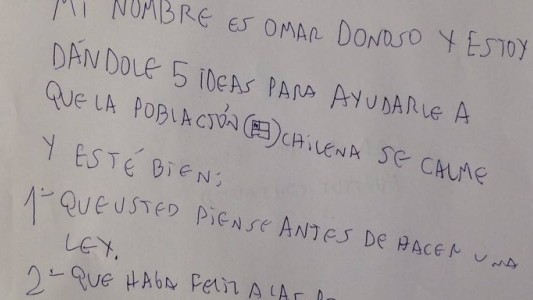 MI NOMBRE ES OMAR DONOSO Y ESTOY
DÁNDOLE 5 IDEAS PARA AYUDARLE A
QUE LA POBLACIÓN CHILENA SE CALME
Y ESTÉ BIEN:
1- QUE USTED PIENSE ANTES DE HACER UNA
LEY.
2- QUE HAGA FELIZ A LAS